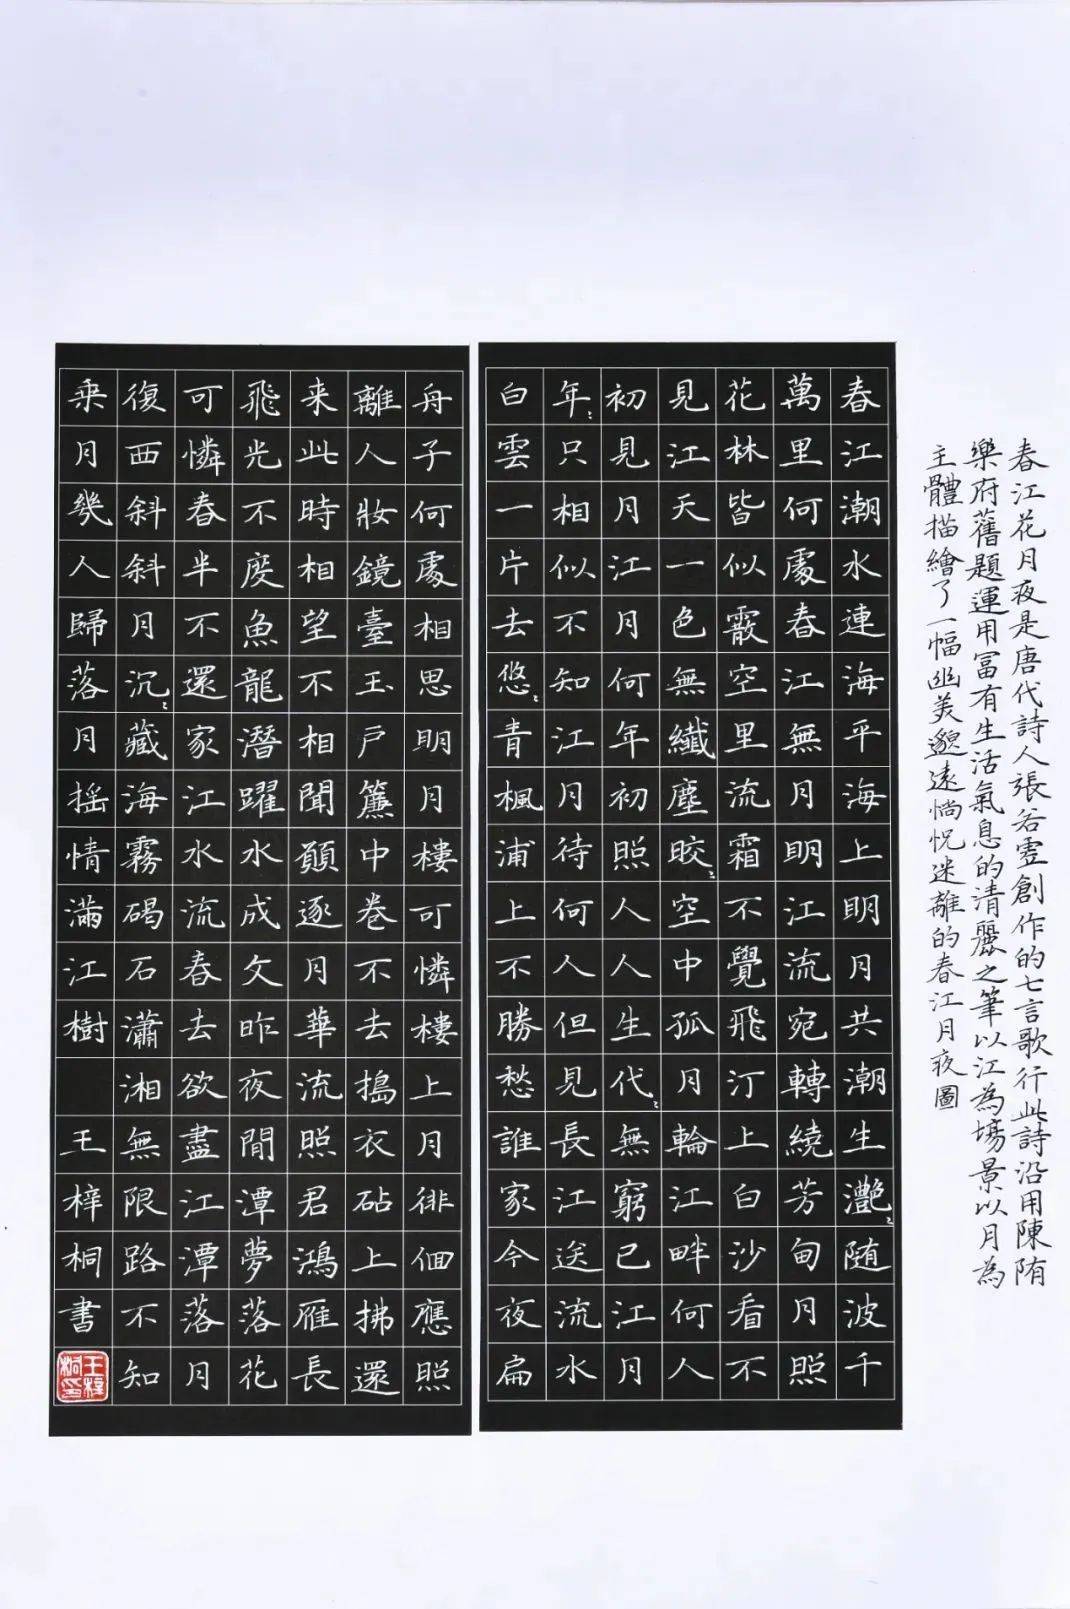 春江花月夜是唐代詩人張若虛創作的七言歌行此詩沿用陳隋
樂府舊題運用富有生活氣息的清麗之筆以江為場景以月為
主體描繪了一幅幽美邈遠惝怳迷離的春江月夜圖
春江潮水連海平海上明月共潮生灧〻随波千
萬里何處春江無月明江流宛轉繞芳甸月照
花林皆似霰空里流霜不覺飛汀上白沙看不
見江天一色無纖塵皎〻空中孤月輪江畔何人
初見月江月何年初照人人生代〻無窮已江月
年〻只相似不知江月待何人但見長江送流水
白雲一片去悠〻青楓浦上不勝愁誰家今夜扁
舟子何處相思明月樓可憐樓上月徘佪應照
離人妝鏡臺玉戶簾中卷不去搗衣砧上拂還
来此時相望不相聞願逐月華流照君鴻雁長
飛光不度魚龍潛躍水成文昨夜閒潭夢落花
可憐春半不還家江水流春去欲盡江潭落月
復西斜斜月沉〻藏海霧碣石瀟湘無限路不知
乘月幾人歸落月摇情滿江樹 王梓桐書
王梓桐印